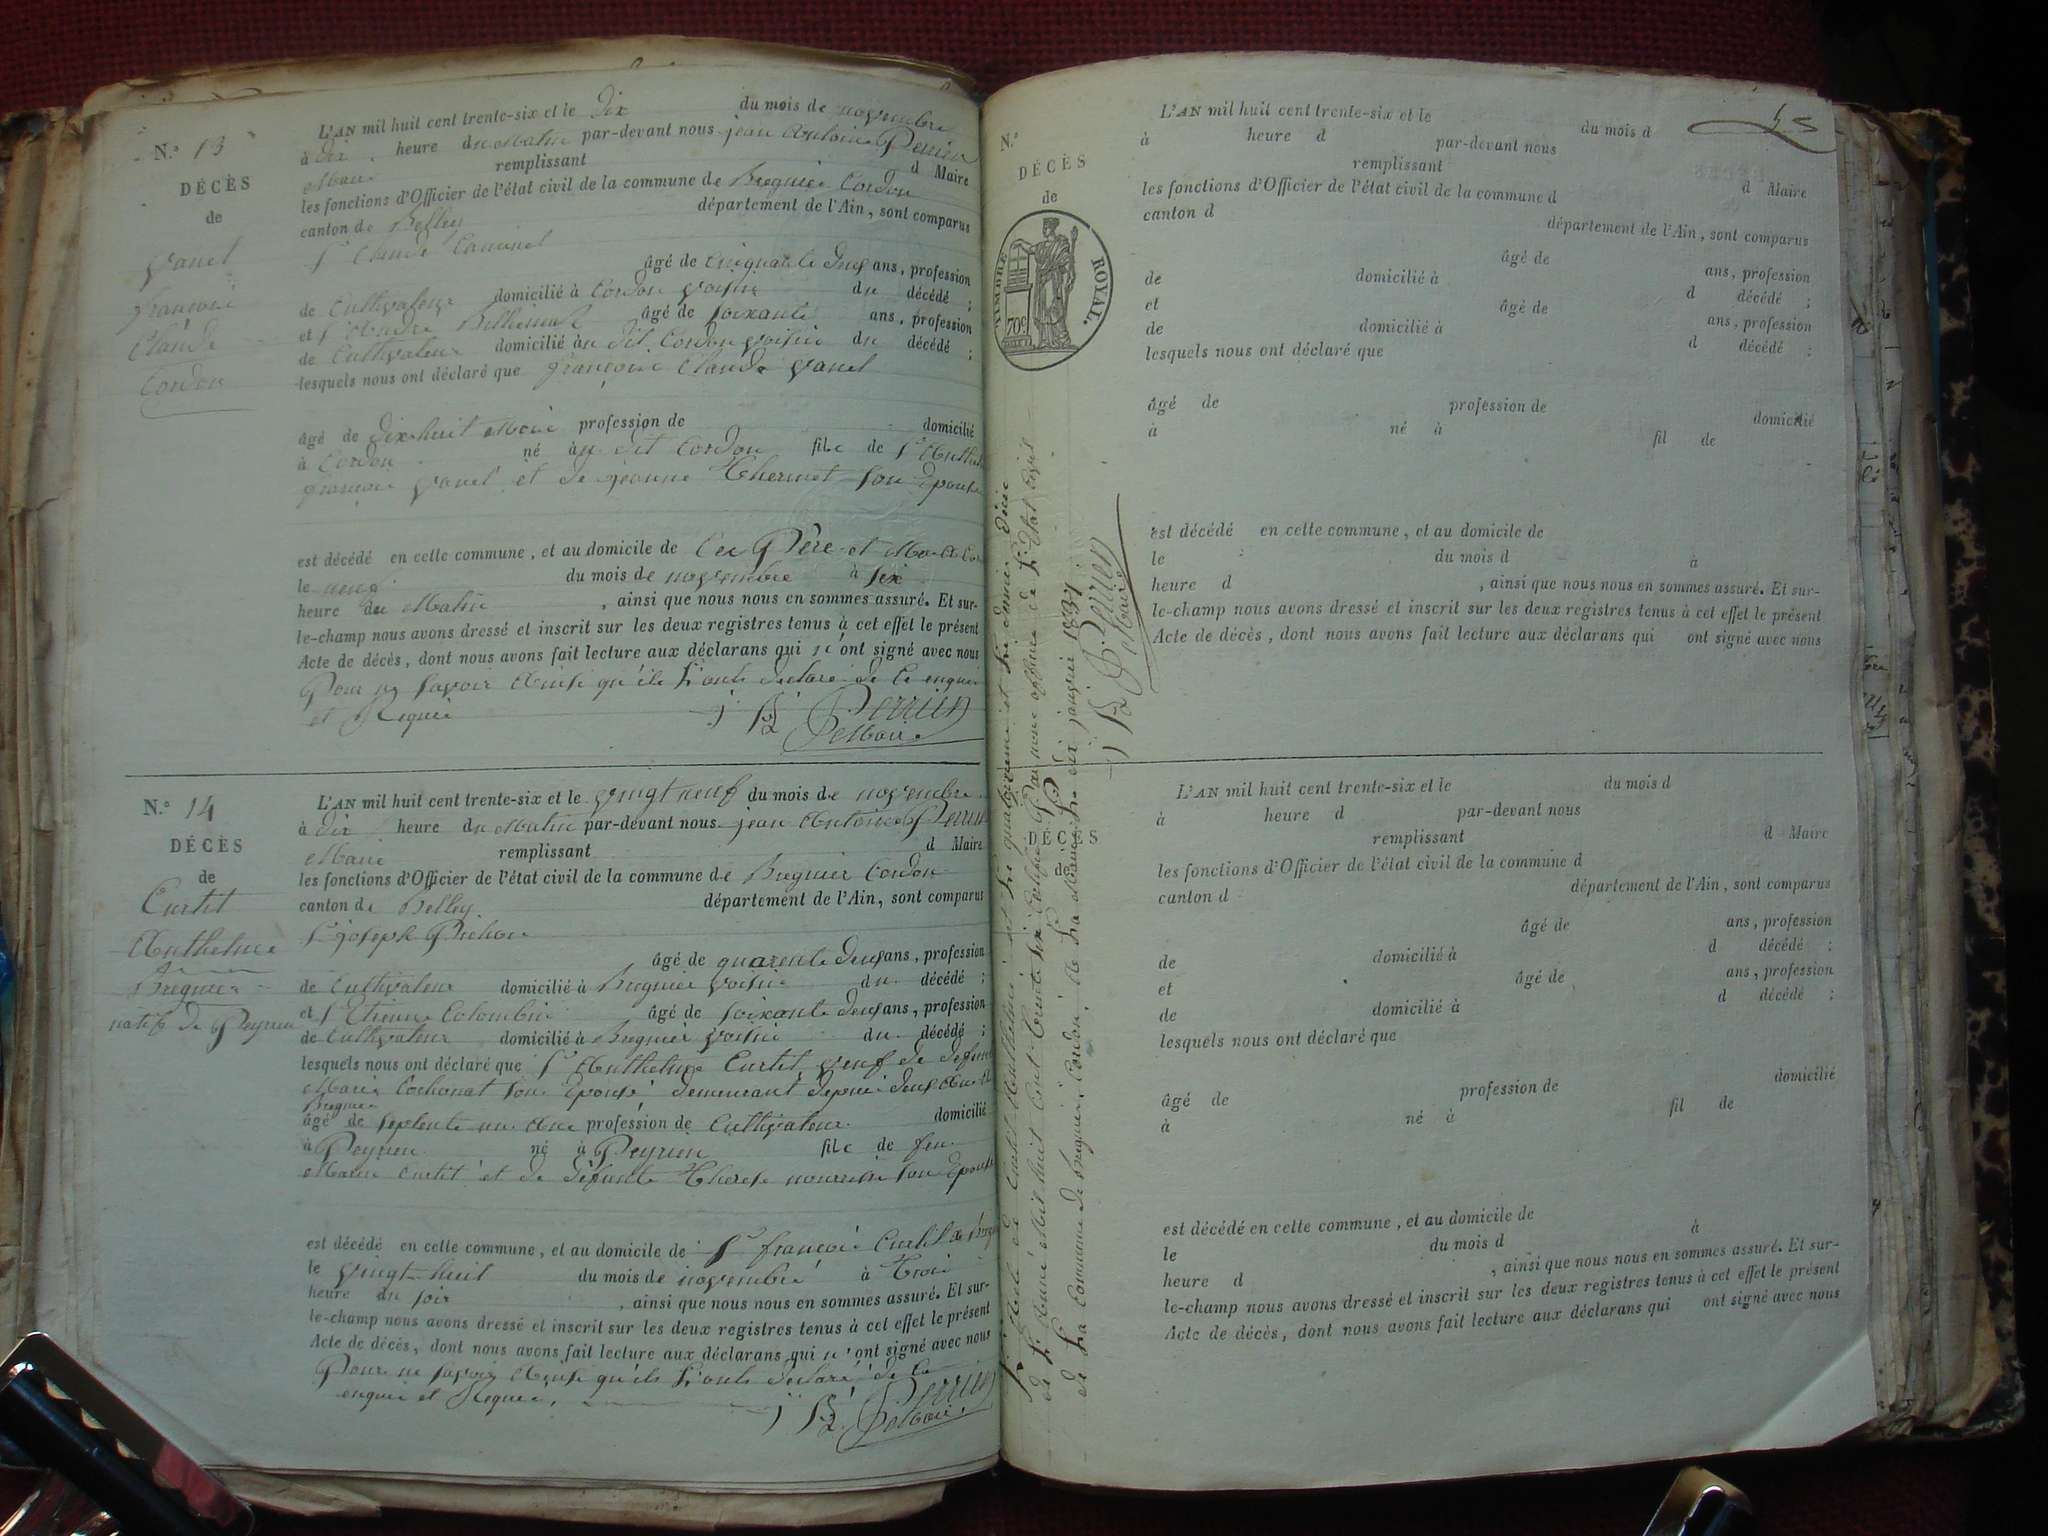 N.° 13
DÉCÈS
de
Vanel
françois
Claude
Cordon
L'AN mil huit cent trente-six et le dix du mois de novembre
à dix heure du Matin par-devant nous jean Antoine Perrier
Maire remplissant d Maire
les fonctions d'Officier de l'état civil de la commune de Bregnier Cordon
canton de Belley département de l'Ain, sont comparus
Sr Claude
âgé de Cinquante deux ans, profession
de Cultivateur domicilié à Cordon voisin du décédé ;
et Sr André âgé de soixante ans, profession
de Cultivateur domicilié au dit Cordon voisin du décédé ;
lesquels nous ont déclaré que françois Claude Vanel
âgé de dix huit Mois profession de domicilié
à Cordon né au dit Cordon fils de Sr
françois Vanel et de jeanne Thermet son Epouse
est décédé en celle commune, et au domicile de Ces Père et
le neuf du mois de novembre à six
heure du Matin , ainsi que nous nous en sommes assuré. Et sur-
le-champ nous avons dressé et inscrit sur les deux registres tenus à cet effet le présent
Acte de décès, dont nous avons fait lecture aux déclarans qui n'ont signé avec nous
Pour ne savoir Ainsi qu'ils L'onts declaré de Ce enquis
et Requis
Perrier
Maire
N.° 14
DÉCÈS
de
Curtit
Anthelme
Bregnier
natif de Peyrieu
L'AN mil huit cent trente-six et le vingt neuf du mois de novembre
à dix heure du Matin par-devant nous jean Antoine Perrier
Maire remplissant d Maire
les fonctions d'Officier de l'état civil de la commune de Bregnier Cordon
canton de Belley département de l'Ain, sont comparus
Sr joseph
âgé de quarente deux ans, profession
de Cultivateur domicilié à Bregnier voisin du décédé ;
et Sr Etienne Colombin âgé de soixante deux ans, profession
de Cultivateur domicilié à Bregnier voisin du décédé ;
lesquels nous ont déclaré que Sr Anthelme Curtit veuf de
Marie Cochonat son Epouse demeurant depuis deux Ans
Bregnier
âgé de septente un Ans profession de Cultivateur domicilié
à Peyrieu né à Peyrieu fils de feu
Curtit et de défunte Therese son Epouse
est décédé en celle commune, et au domicile de Sr françois Curtit
le vingt-huit du mois de novembre à Trois
heure du soir , ainsi que nous nous en sommes assuré. Et sur-
le-champ nous avons dressé et inscrit sur les deux registres tenus à cet effet le présent
Acte de décès, dont nous avons fait lecture aux déclarans qui n'ont signé avec nous
Pour ne savoir Ainsi qu'ils L'onts declaré de Ce
enquis et Requis.
Perrier
Maire
N.°
DÉCÈS
de
TIMBRE ROYAL.
70c
L'AN mil huit cent trente-six et le du mois d
à heure d par-devant nous
remplissant d Maire
les fonctions d'Officier de l'état civil de la commune d
canton d département de l'Ain, sont comparus
âgé de ans, profession
de domicilié à d décédé ;
et âgé de ans, profession
de domicilié à d décédé ;
lesquels nous ont déclaré que
âgé de profession de domicilié
à né à fil de
est décédé en celle commune, et au domicile de
le du mois d à
heure d , ainsi que nous nous en sommes assuré. Et sur-
le-champ nous avons dressé et inscrit sur les deux registres tenus à cet effet le présent
Acte de décès, dont nous avons fait lecture aux déclarans qui ont signé avec nous
DÉCÈS
de
L'AN mil huit cent trente-six et le du mois d
à heure d par-devant nous
remplissant d Maire
les fonctions d'Officier de l'état civil de la commune d
canton d département de l'Ain, sont comparus
âgé de ans, profession
de domicilié à d décédé ;
et âgé de ans, profession
de domicilié à d décédé ;
lesquels nous ont déclaré que
âgé de profession de domicilié
à né à fil de
est décédé en celle commune, et au domicile de
le du mois d à
heure d , ainsi que nous nous en sommes assuré. Et sur-
le-champ nous avons dressé et inscrit sur les deux registres tenus à cet effet le présent
Acte de décès, dont nous avons fait lecture aux déclarans qui ont signé avec nous
de L'Année Mil huit Cent Trente six Par nous officier de L'Etat Civil
de La Commune de Bregnier Cordon, à La Mairie Le janvier 1837
Perrier
Maire